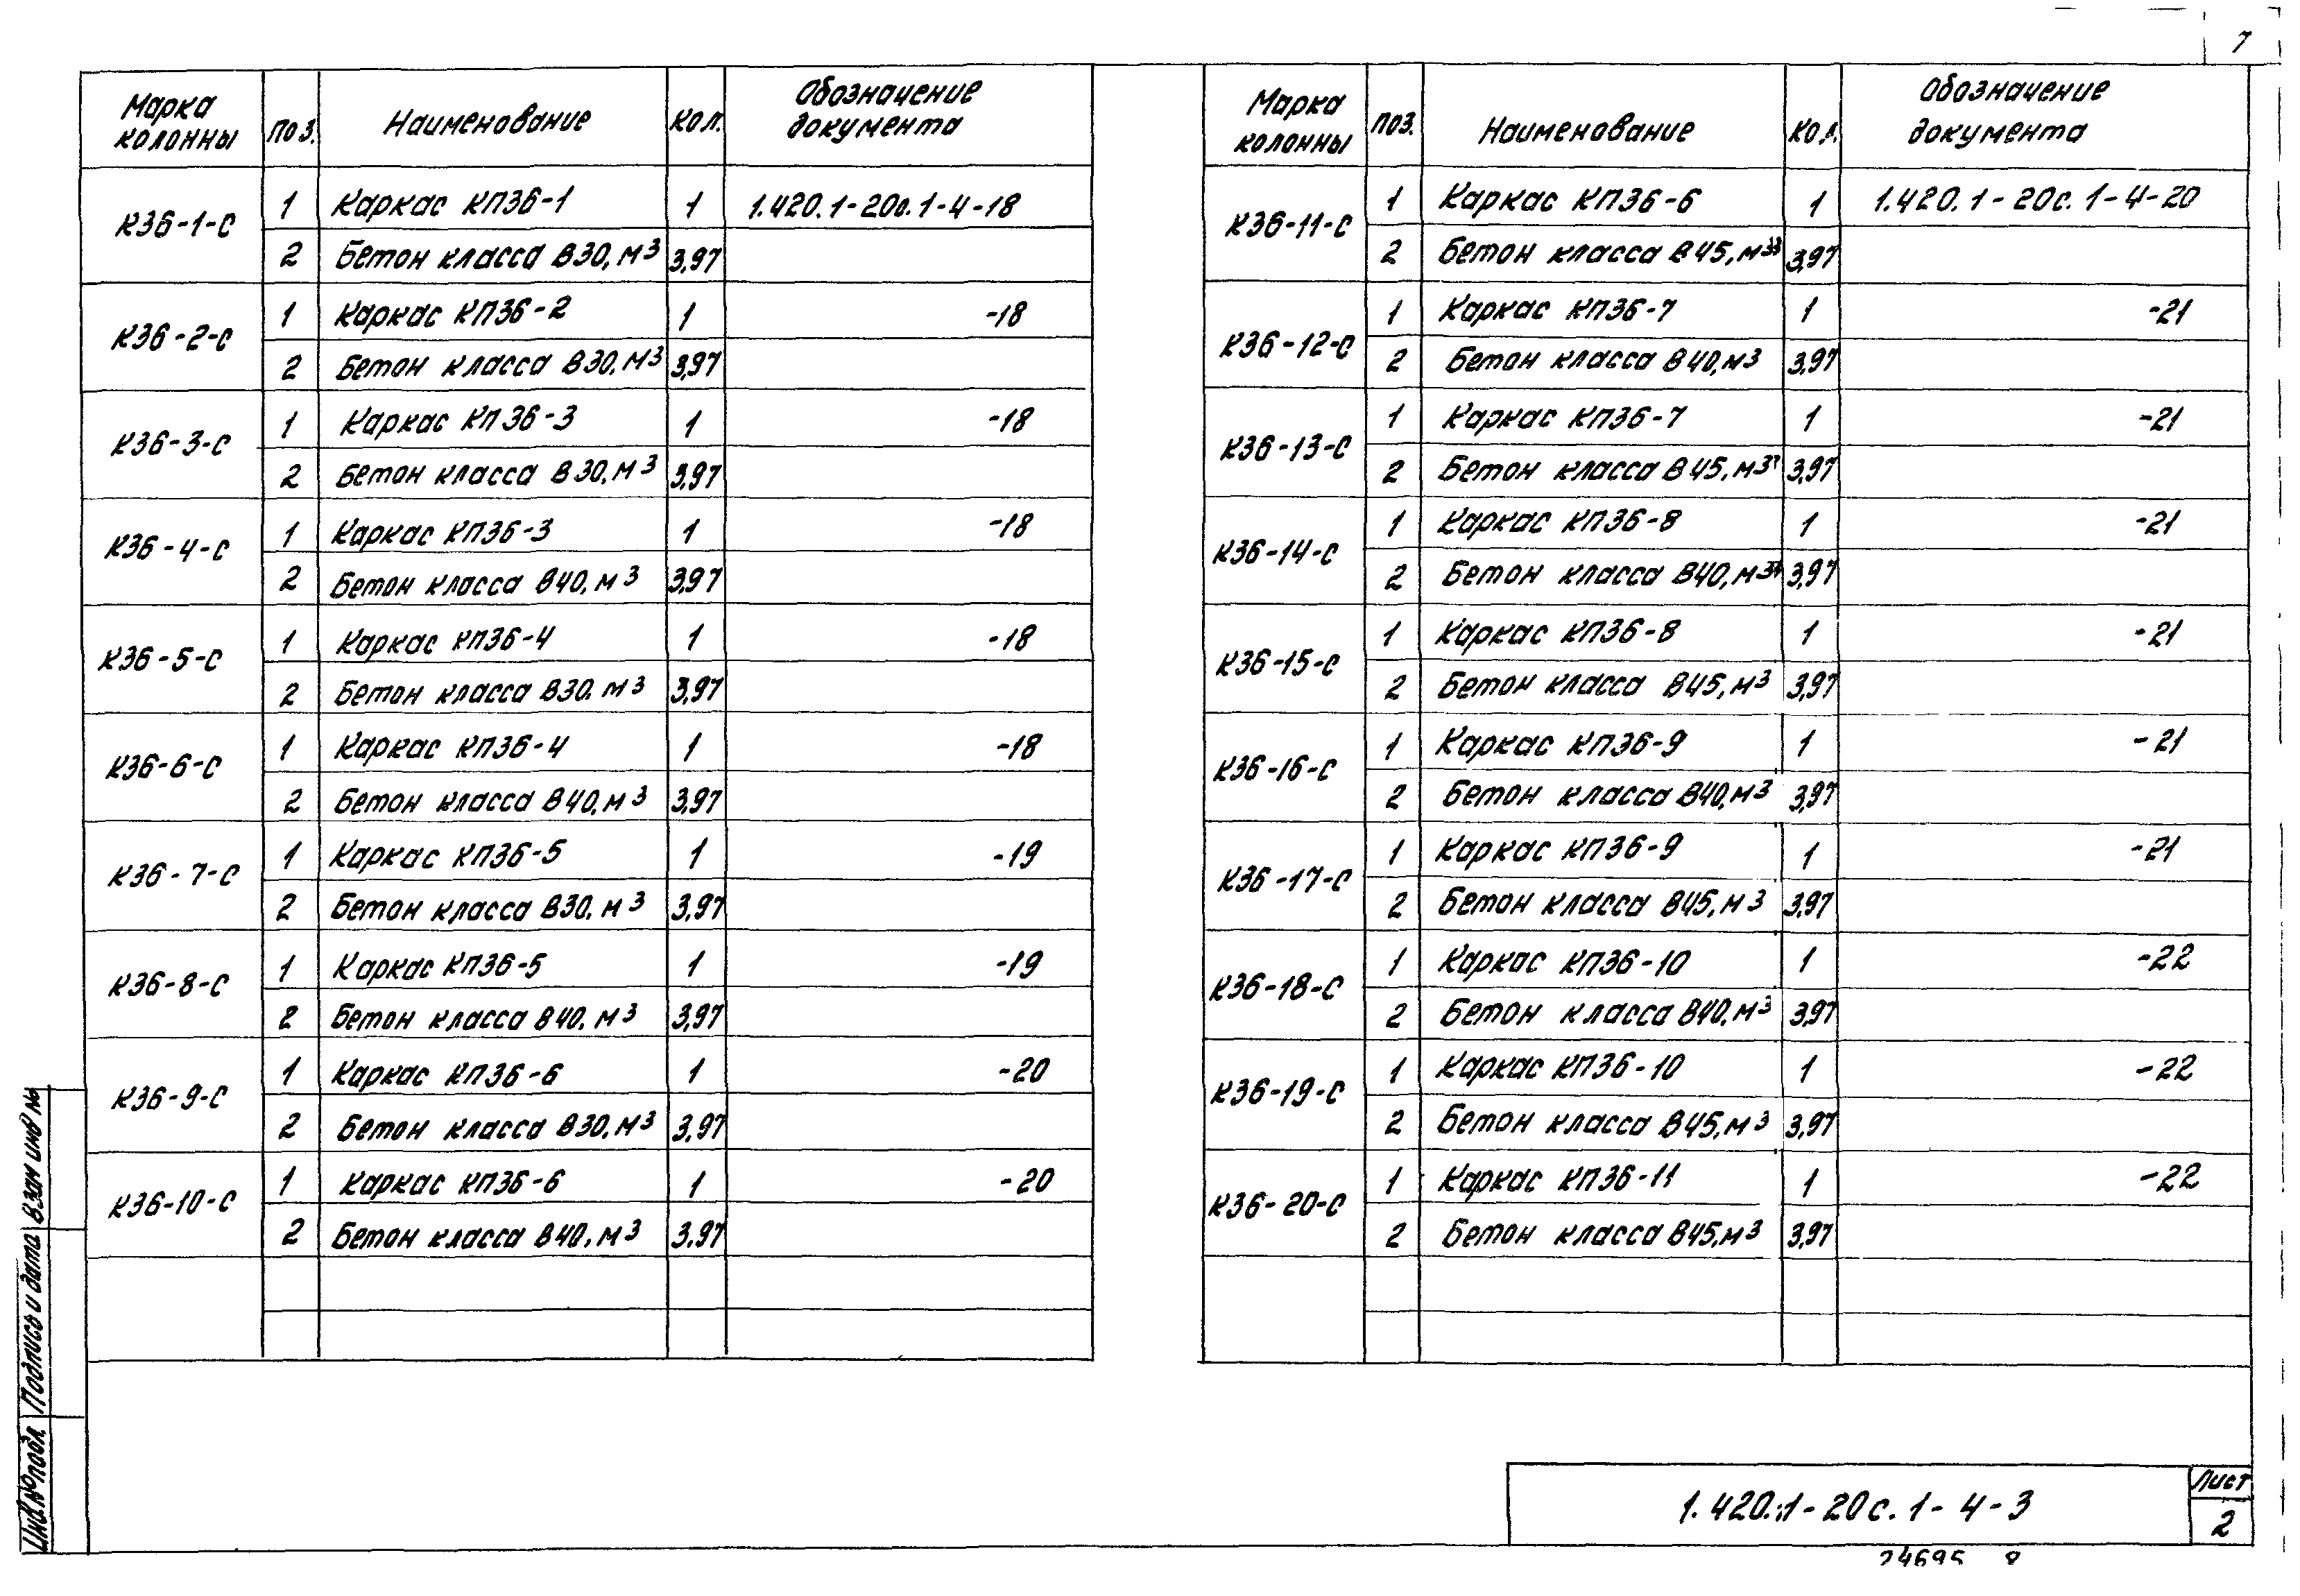 7
Марка колонны | Поз. | Наименование | Кол. | Обозначение документа
К36-1-С | 1 | Каркас КП36-1 | 1 | 1.420.1-20с.1-4-18
2 | Бетон класса В30, м3 | 3,97
К36-2-С | 1 | Каркас КП36-2 | 1 | -18
2 | Бетон класса В30, м3 | 3,97
К36-3-С | 1 | Каркас КП36-3 | 1 | -18
2 | Бетон класса В30, м3 | 3,97
К36-4-С | 1 | Каркас КП36-3 | 1 | -18
2 | Бетон класса В40, м3 | 3,97
К36-5-С | 1 | Каркас КП36-4 | 1 | -18
2 | Бетон класса В30, м3 | 3,97
К36-6-С | 1 | Каркас КП36-4 | 1 | -18
2 | Бетон класса В40, м3 | 3,97
К36-7-С | 1 | Каркас КП36-5 | 1 | -19
2 | Бетон класса В30, м3 | 3,97
К36-8-С | 1 | Каркас КП36-5 | 1 | -19
2 | Бетон класса В40, м3 | 3,97
К36-9-С | 1 | Каркас КП36-6 | 1 | -20
2 | Бетон класса В30, м3 | 3,97
К36-10-С | 1 | Каркас КП36-6 | 1 | -20
2 | Бетон класса В40, м3 | 3,97
Марка колонны | Поз. | Наименование | Кол. | Обозначение документа
К36-11-С | 1 | Каркас КП36-6 | 1 | 1.420.1-20с.1-4-20
2 | Бетон класса В45, м3 | 3,97
К36-12-С | 1 | Каркас КП36-7 | 1 | -21
2 | Бетон класса В40, м3 | 3,97
К36-13-С | 1 | Каркас КП36-7 | 1 | -21
2 | Бетон класса В45, м3 | 3,97
К36-14-С | 1 | Каркас КП36-8 | 1 | -21
2 | Бетон класса В40, м3 | 3,97
К36-15-С | 1 | Каркас КП36-8 | 1 | -21
2 | Бетон класса В45, м3 | 3,97
К36-16-С | 1 | Каркас КП36-9 | 1 | -21
2 | Бетон класса В40, м3 | 3,97
К36-17-С | 1 | Каркас КП36-9 | 1 | -21
2 | Бетон класса В45, м3 | 3,97
К36-18-С | 1 | Каркас КП36-10 | 1 | -22
2 | Бетон класса В40, м3 | 3,97
К36-19-С | 1 | Каркас КП36-10 | 1 | -22
2 | Бетон класса В45, м3 | 3,97
К36-20-С | 1 | Каркас КП36-11 | 1 | -22
2 | Бетон класса В45, м3 | 3,97
Инв.№подл. Подпись и дата Взам инв №
1.420.1-20с.1-4-3
Лист
2
24695 8